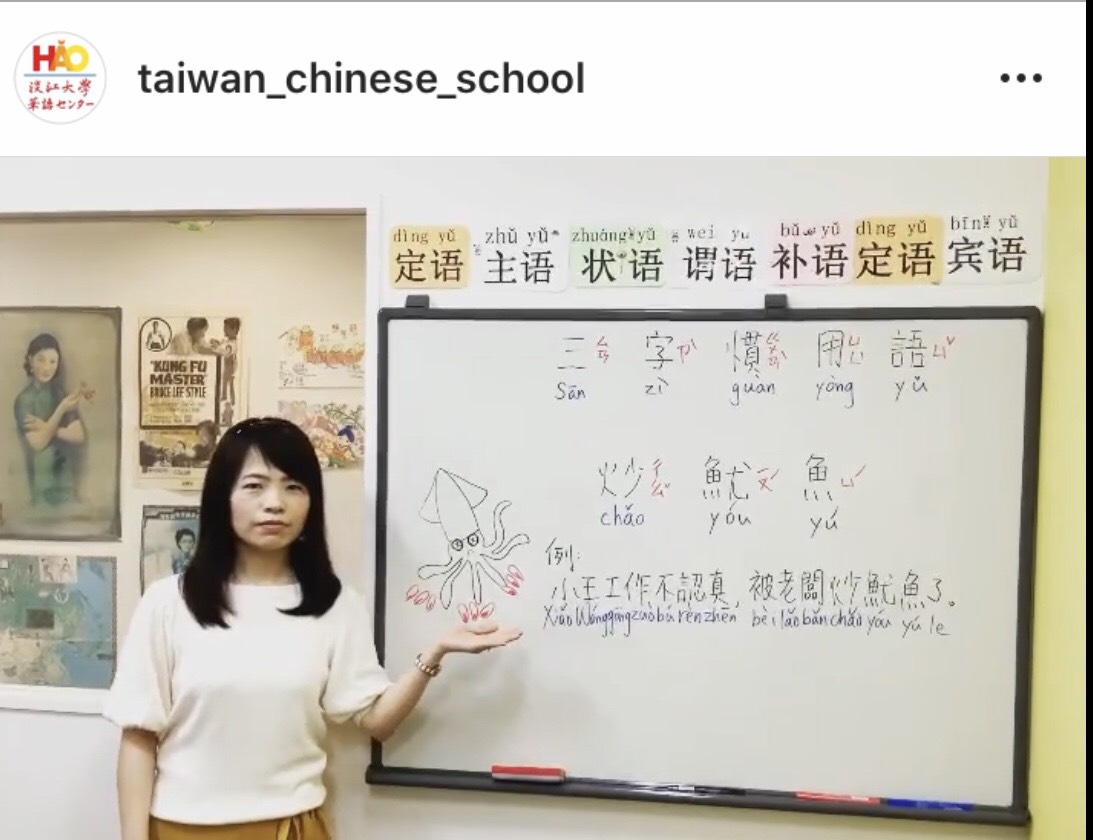 HǍO
淡江大學
華語センター
taiwan_chinese_school
dìng yǔ zhǔ yǔ zhuàng yǔ wei yu bǔ yǔ dìng yǔ bīn yǔ
定语 主语 状语 谓语 补语 定语 宾语
"KUNG FU
MASTER"
BRUCE LEE STYLE
COLOR
三ㄙㄢ 字ㄗˋ 慣ㄍㄨㄢˋ 用ㄩㄥˋ 語ㄩˇ
Sān zì guàn yòng yǔ
炒ㄔㄠˇ 魷ㄧㄡˊ 魚ㄩˊ
chǎo yóu yú
例:
小王工作不認真,被老闆炒魷魚了。
Xiǎo Wánggōngzuòbú rènzhēn bèi lǎobǎnchǎo yóu yú le